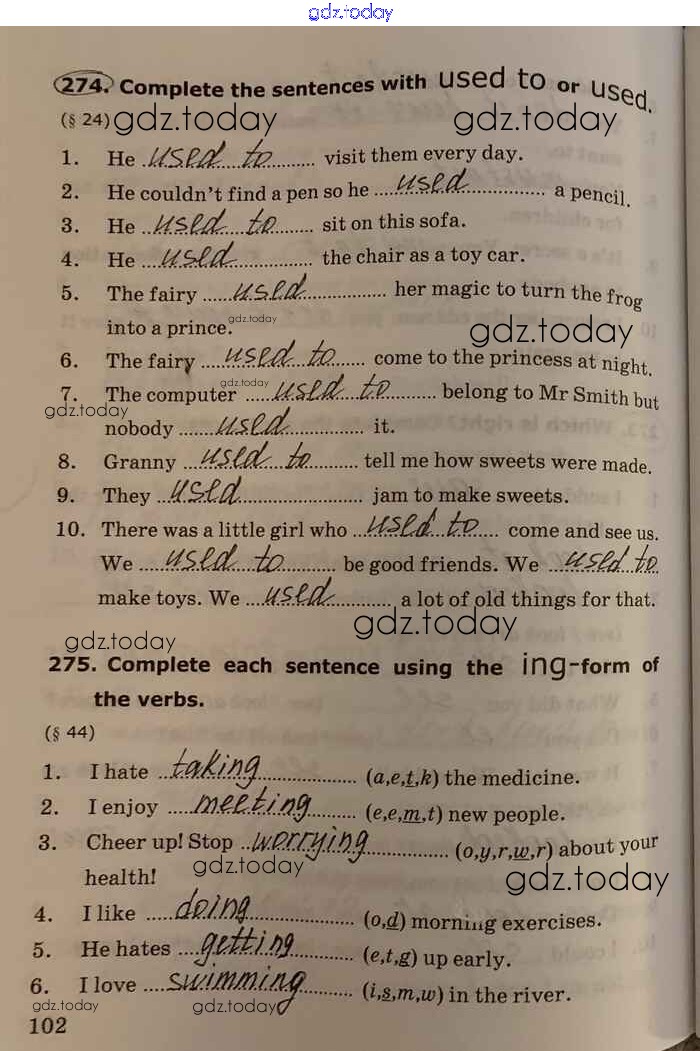 gdz.today
274. Complete the sentences with used to or used.
(§ 24) gdz.today gdz.today
1. He used to visit them every day.
2. He couldn't find a pen so he used a pencil.
3. He used to sit on this sofa.
4. He used the chair as a toy car.
5. The fairy used her magic to turn the frog
into a prince. gdz.today gdz.today
6. The fairy used to come to the princess at night.
7. The computer used to belong to Mr Smith but
gdz.today gdz.today
nobody used it.
8. Granny used to tell me how sweets were made.
9. They used jam to make sweets.
10. There was a little girl who used to come and see us.
We used to be good friends. We used to
make toys. We used a lot of old things for that.
gdz.today gdz.today
275. Complete each sentence using the ing-form of
the verbs.
(§ 44)
1. I hate taking (a,e,t,k) the medicine.
2. I enjoy meeting (e,e,m,t) new people.
3. Cheer up! Stop worrying (o,y,r,w,r) about your
health! gdz.today gdz.today
4. I like doing (o,d) morning exercises.
5. He hates getting (e,t,g) up early.
6. I love swimming (i,s,m,w) in the river.
gdz.today gdz.today
102